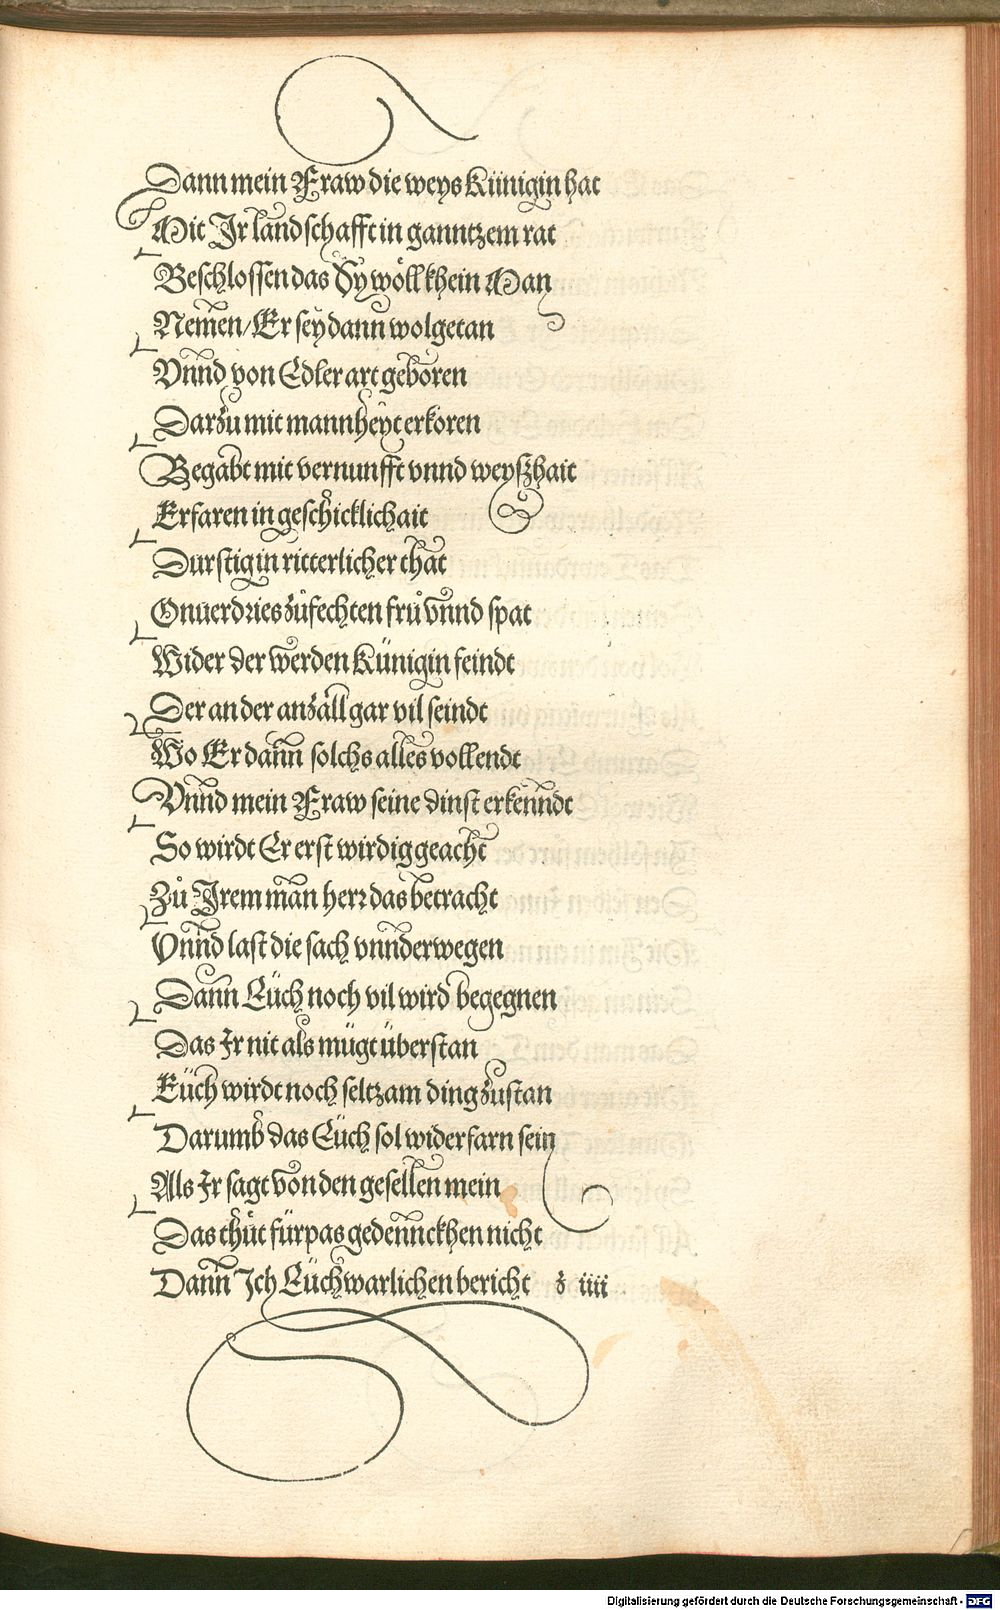 Dann mein Fraw die weys Künigin hat
Mit Ir landschafft in ganntzem rat
Beschlossen das Sy wöll khein Man
Nemen/ Er sey dann wolgetan
Vnnd von Edler art geboren
Darzu mit mannheyt erkoren
Begabt mit vernunfft vnnd weyßhait
Erfaren in geschicklichait
Durstig in ritterlicher that
Onuerdries zůfechten frů vnnd spat
Wider der werden Künigin feindt
Der an der anzall gar vil seindt
Wo Er dann solchs alles vollendt
Vnnd mein Fraw seine dinst erkenndt
So wirdt Er erst wirdig geacht
Zů Irem man herr das betracht
Vnnd last die sach vnnderwegen
Dann Eüch noch vil wird begegnen
Das Ir nit als mügt überstan
Eüch wirdt noch seltzam ding zustan
Darumb das Eüch sol widerfarn sein
Als Ir sagt von den gesellen mein
Das thůt fürpas gedennckhen nicht
Dann Ich Eüch warlichen bericht z iiii
Digitalisierung gefördert durch die Deutsche Forschungsgemeinschaft - DFG